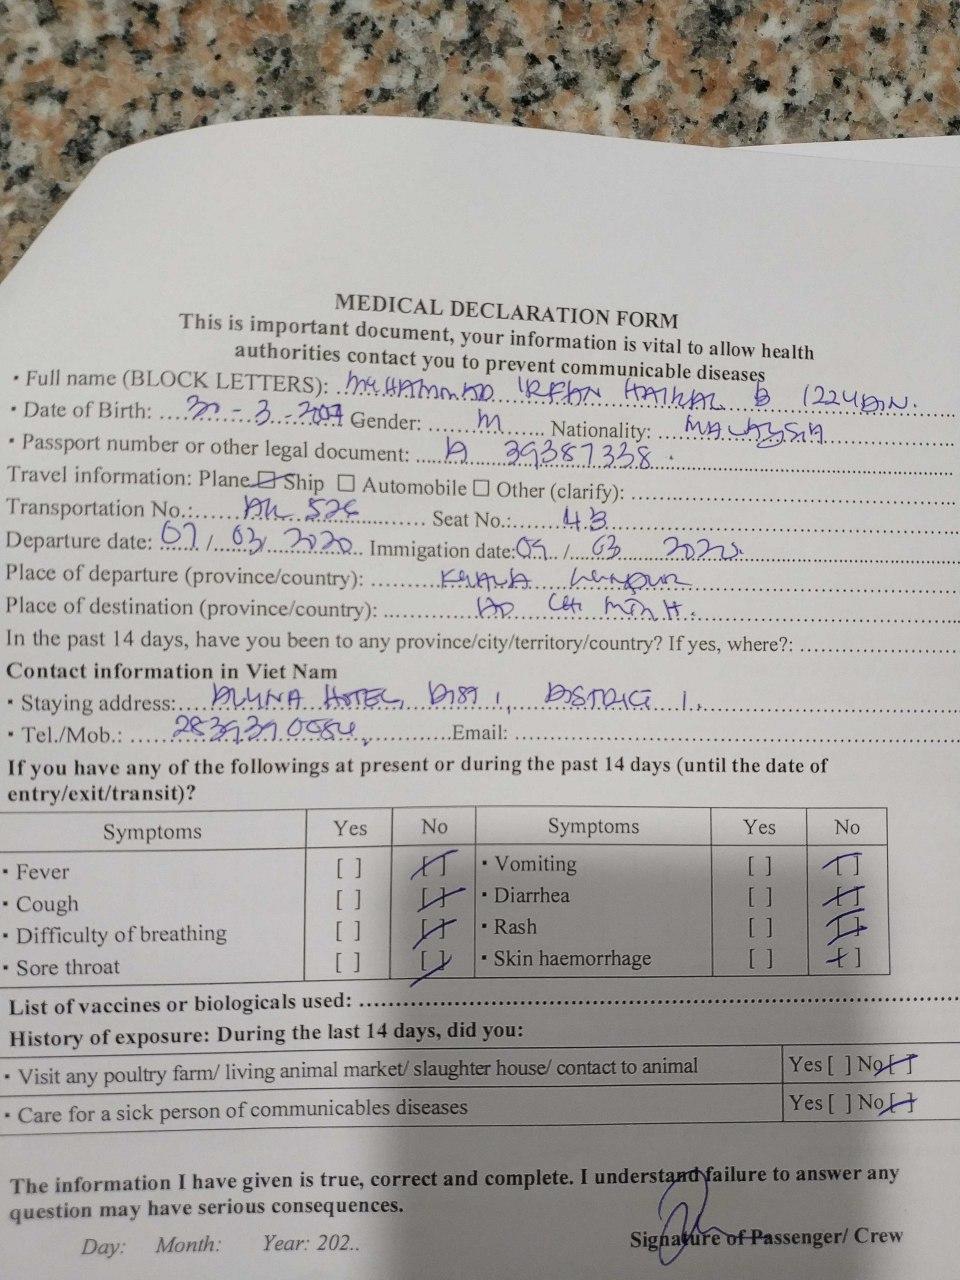 MEDICAL DECLARATION FORM
This is important document, your information is vital to allow health
authorities contact you to prevent communicable diseases
• Full name (BLOCK LETTERS): MUHAMMAD IRFAN HAIKAL B
• Date of Birth: - 3 - Gender: M Nationality: MALAYSIA
• Passport number or other legal document: A 39387338
Travel information: Plane ☐ Ship ☐ Automobile ☐ Other (clarify):
Transportation No.: AK 526 Seat No.: 4B
Departure date: 07 / 03 / 2020 Immigation date: / 03 2020
Place of departure (province/country): KUALA LUMPUR
Place of destination (province/country): HO CHI MINH.
In the past 14 days, have you been to any province/city/territory/country? If yes, where?:
Contact information in Viet Nam
• Staying address: HOTEL, DIST 1, DISTRICT 1.
• Tel./Mob.: Email:
If you have any of the followings at present or during the past 14 days (until the date of
entry/exit/transit)?
Symptoms Yes No Symptoms Yes No
• Fever [ ] [ ] • Vomiting [ ] [ ]
• Cough [ ] [ ] • Diarrhea [ ] [ ]
• Difficulty of breathing [ ] [ ] • Rash [ ] [ ]
• Sore throat [ ] [ ] • Skin haemorrhage [ ] [ ]
List of vaccines or biologicals used:
History of exposure: During the last 14 days, did you:
• Visit any poultry farm/ living animal market/ slaughter house/ contact to animal Yes [ ] No [ ]
• Care for a sick person of communicables diseases Yes [ ] No [ ]
The information I have given is true, correct and complete. I understand failure to answer any
question may have serious consequences.
Day: Month: Year: 202..
Signature of Passenger/ Crew